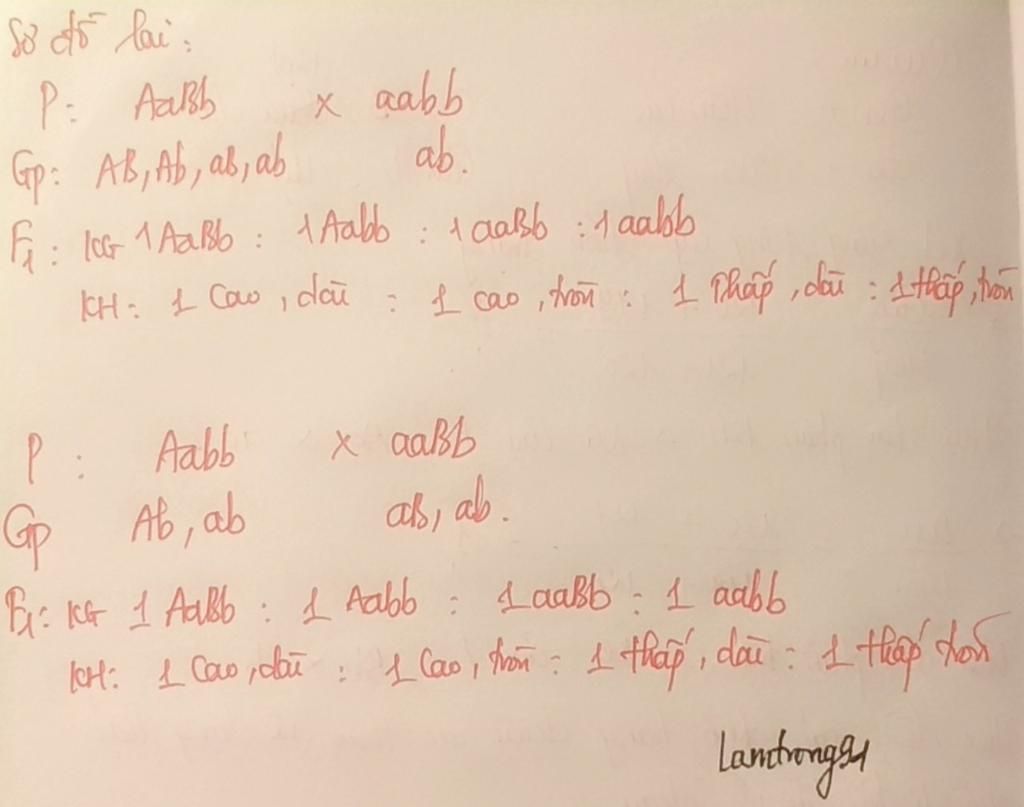 Sơ đồ lai:
P: AaBb x aabb
Gp: AB, Ab, aB, ab ab.
F1: KG 1 AaBb : 1 Aabb : 1 aaBb : 1 aabb
KH: 1 Cao, dài : 1 cao, tròn : 1 Thấp, dài : 1 thấp, tròn
P : Aabb x aaBb
Gp Ab, ab aB, ab.
F1: KG 1 AaBb : 1 Aabb : 1 aaBb : 1 aabb
KH: 1 Cao, dài : 1 Cao, tròn : 1 thấp, dài : 1 thấp tròn
Lamtrong91